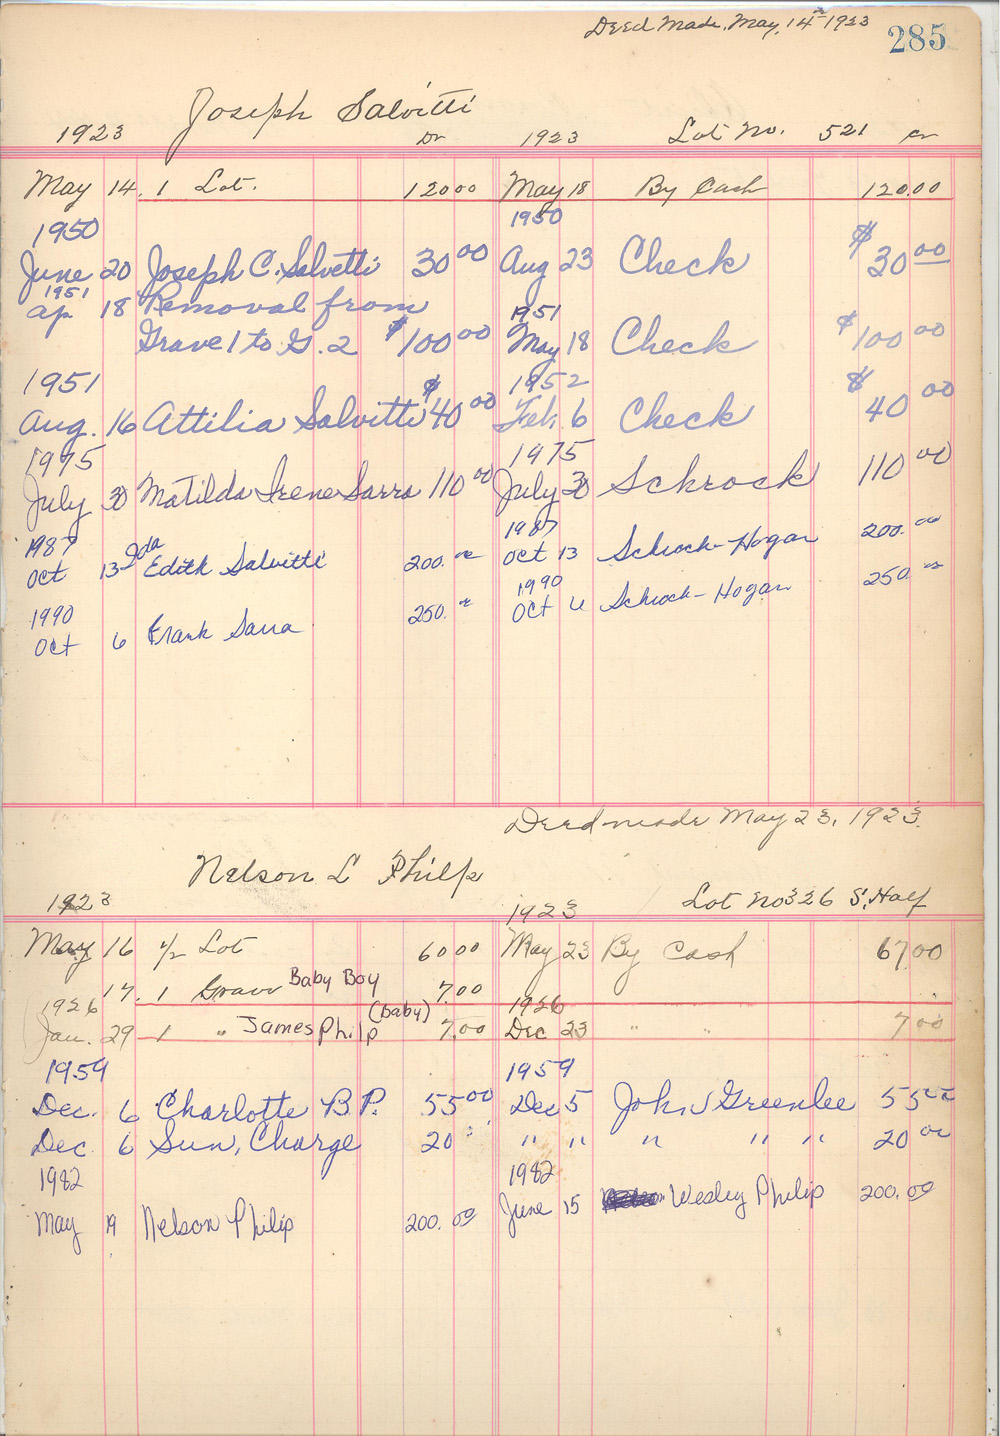 Deed Made, May, 14th 1923
285
Joseph Salvitti
1923 Dr 1923 Lot No. 521 Cr
May 14. 1 Lot. 120 00 May 18 By Cash 120.00
1950 1950
June 20 Joseph C. Salvitti 30 00 Aug 23 Check $ 30 00
1951
Ap 18 Removal from 1951
Grave 1 to G. 2 $100 00 May 18 Check $100 00
1951 1952
Aug. 16 Attilia Salvitti $40 00 Feb. 6 Check $ 40 00
1975 1975
July 30 Matilda Irene Sarra 110 00 July 30 Schrock 110 00
1987 Ida 1987
Oct 13 Edith Salvitti 200. 00 Oct 13 Schrock-Hogan 200. 00
1990 1990
Oct 6 Frank Sarra 250. 00 Oct 6 Schrock-Hogan 250. 00
Deed made May 23, 1923.
Nelson L Philp
1923 1923 Lot No 326 S. Half
May 16 1/2 Lot 60 00 May 23 By Cash 67.00
17. 1 Grave Baby Boy 7.00
1926 (Baby) 1926
Jan. 29 1 " James Philp 7.00 Dec 23 " " 7 00
1959 1959
Dec. 6 Charlotte B. P. 55 00 Dec 5 John J Greenlee 55 00
Dec 6 Sun, Charge 20 " " " " " 20 00
1982 1982
May 19 Nelson Philip 200. 00 June 15 Wesley Philip 200. 00